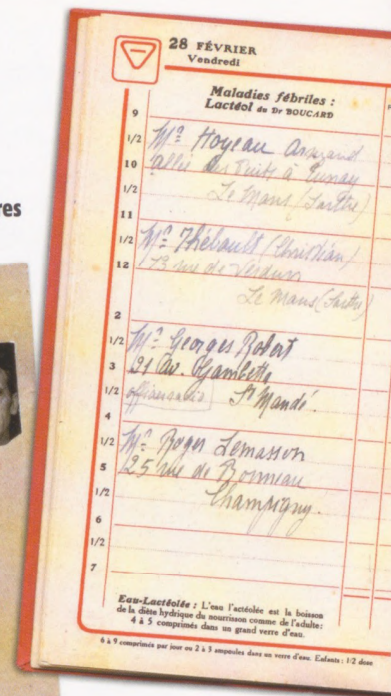 res
28 FÉVRIER
Vendredi
Maladies fébriles :
Lactéol du Dr BOUCARD
9
1/2 Mr Hoyeau Armand
10 Allée des Puits à
1/2 Le Mans (Sarthe)
11
1/2 Mr Thébault (Christian)
12 73 rue de Verdun
Le Mans (Sarthe)
2
1/2 Mr Georges Robert
3 21 Av. Gambetta
1/2 St Mandé.
4
1/2 Mr Roger Lemasson
5 25 rue de Bonneau
1/2 Champigny.
6
1/2
7
Eau-Lactéolée : L'eau l'actéolée est la boisson
de la diète hydrique du nourrisson comme de l'adulte:
4 à 5 comprimés dans un grand verre d'eau.
6 à 9 comprimés par jour ou 2 à 3 ampoules dans un verre d'eau. Enfants : 1/2 dose